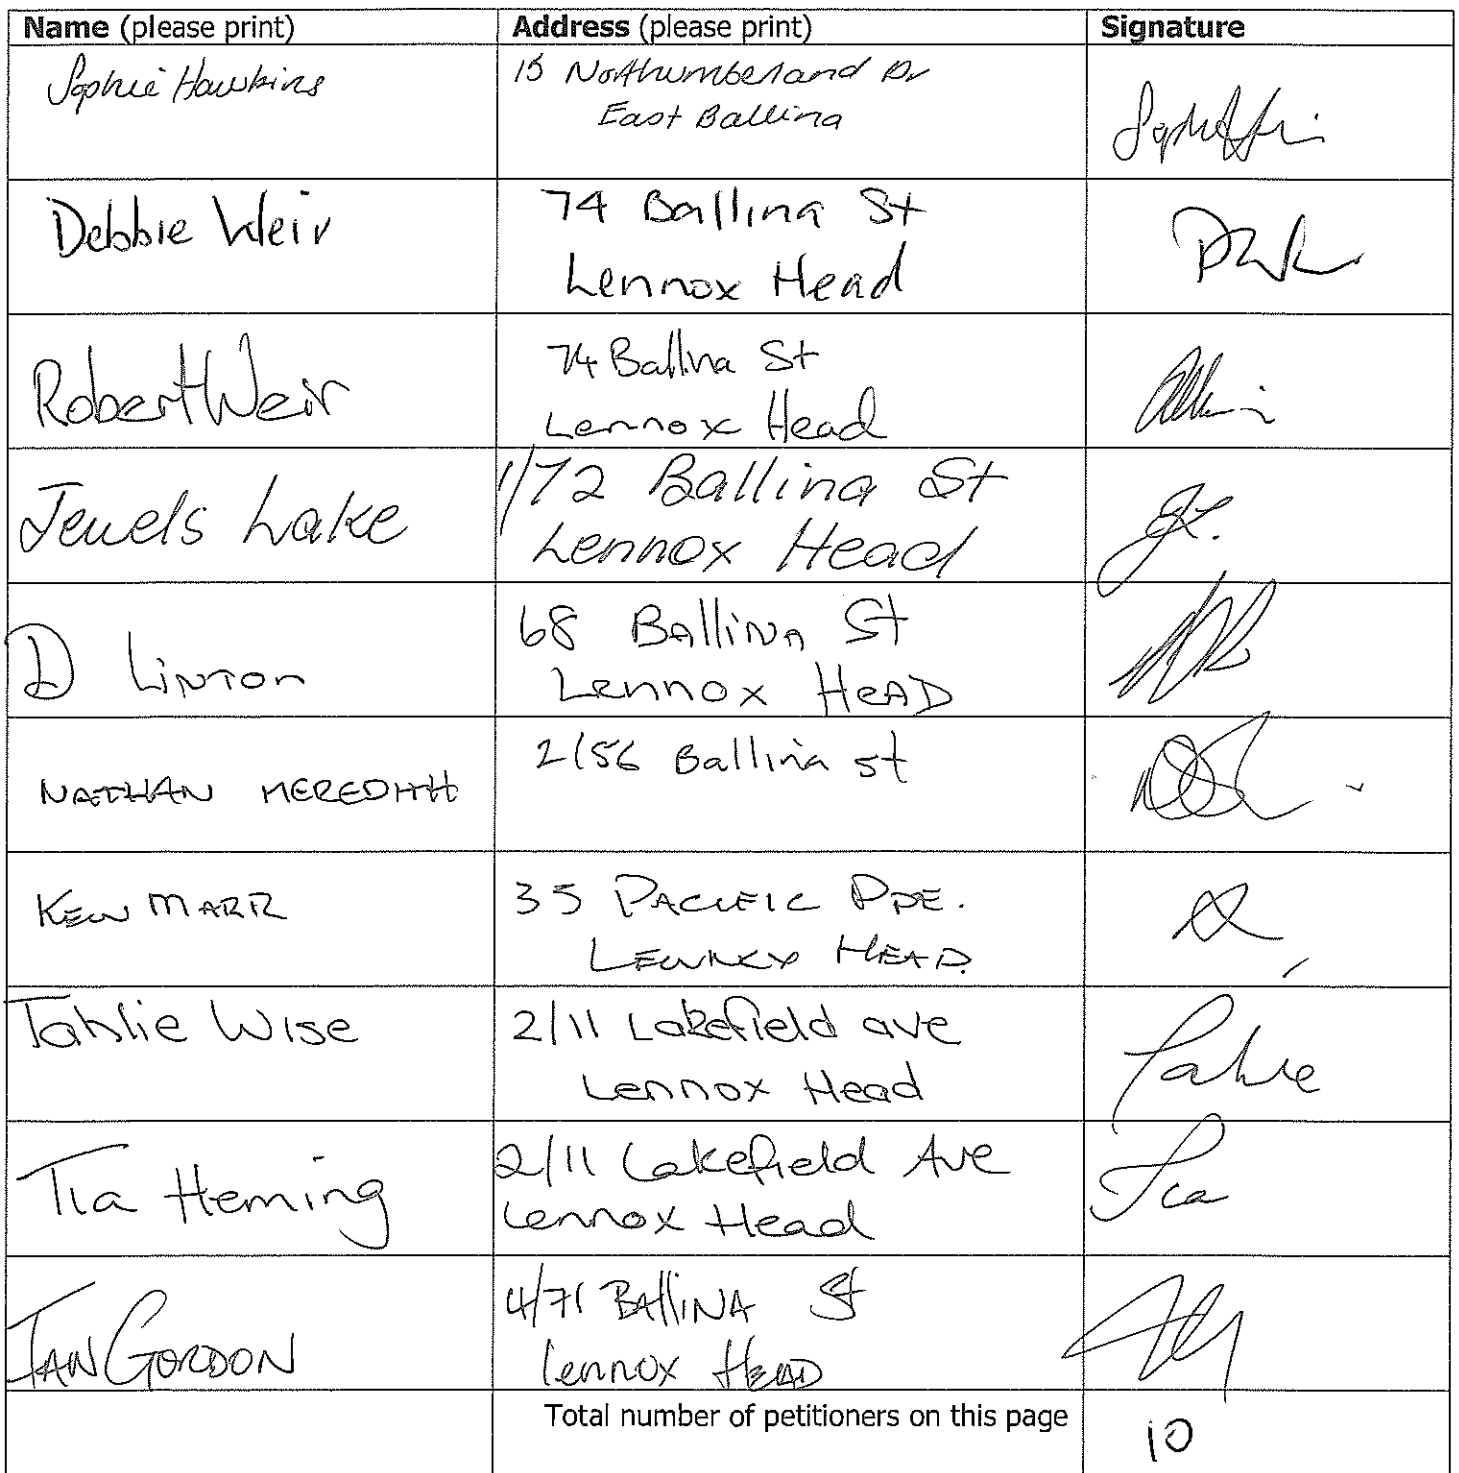 Name (please print) Address (please print) Signature
Sophie Hawkins 15 Northumberland Dr
East Ballina
Debbie Weir 74 Ballina St
Lennox Head
Robert Weir 74 Ballina St
Lennox Head
Jewels Lake 1/72 Ballina St
Lennox Head
D Linton 68 Ballina St
Lennox Head
NATHAN MEREDITH 2/56 Ballina st
KEN MARR 35 PACIFIC PDE.
LENNOX HEAD
Tahlie Wise 2/11 Lakefield ave Tahlie
Lennox Head
Tia Heming 2/11 Lakefield Ave Tia
Lennox Head
GORDON 4/71 BALLINA St
lennox HEAD
Total number of petitioners on this page 10